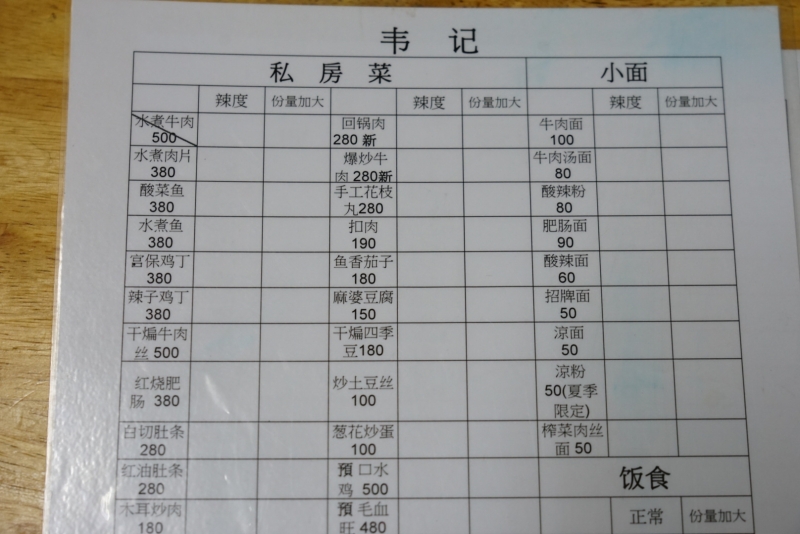 韦 记
私 房 菜 小面
辣度 份量加大 辣度 份量加大 辣度 份量加大
水煮牛肉 500 回锅肉 280 新 牛肉面 100
水煮肉片 380 爆炒牛肉 280新 牛肉汤面 80
酸菜鱼 380 手工花枝丸280 酸辣粉 80
水煮鱼 380 扣肉 190 肥肠面 90
宫保鸡丁 380 鱼香茄子 180 酸辣面 60
辣子鸡丁 380 麻婆豆腐 150 招牌面 50
干煸牛肉丝 500 干煸四季豆180 凉面 50
红烧肥肠 380 炒土豆丝 100 凉粉 50(夏季限定)
白切肚条 280 葱花炒蛋 100 榨菜肉丝面 50
红油肚条 280 預 口水鸡 500 饭食
木耳炒肉 180 預 毛血旺 480 正常 份量加大